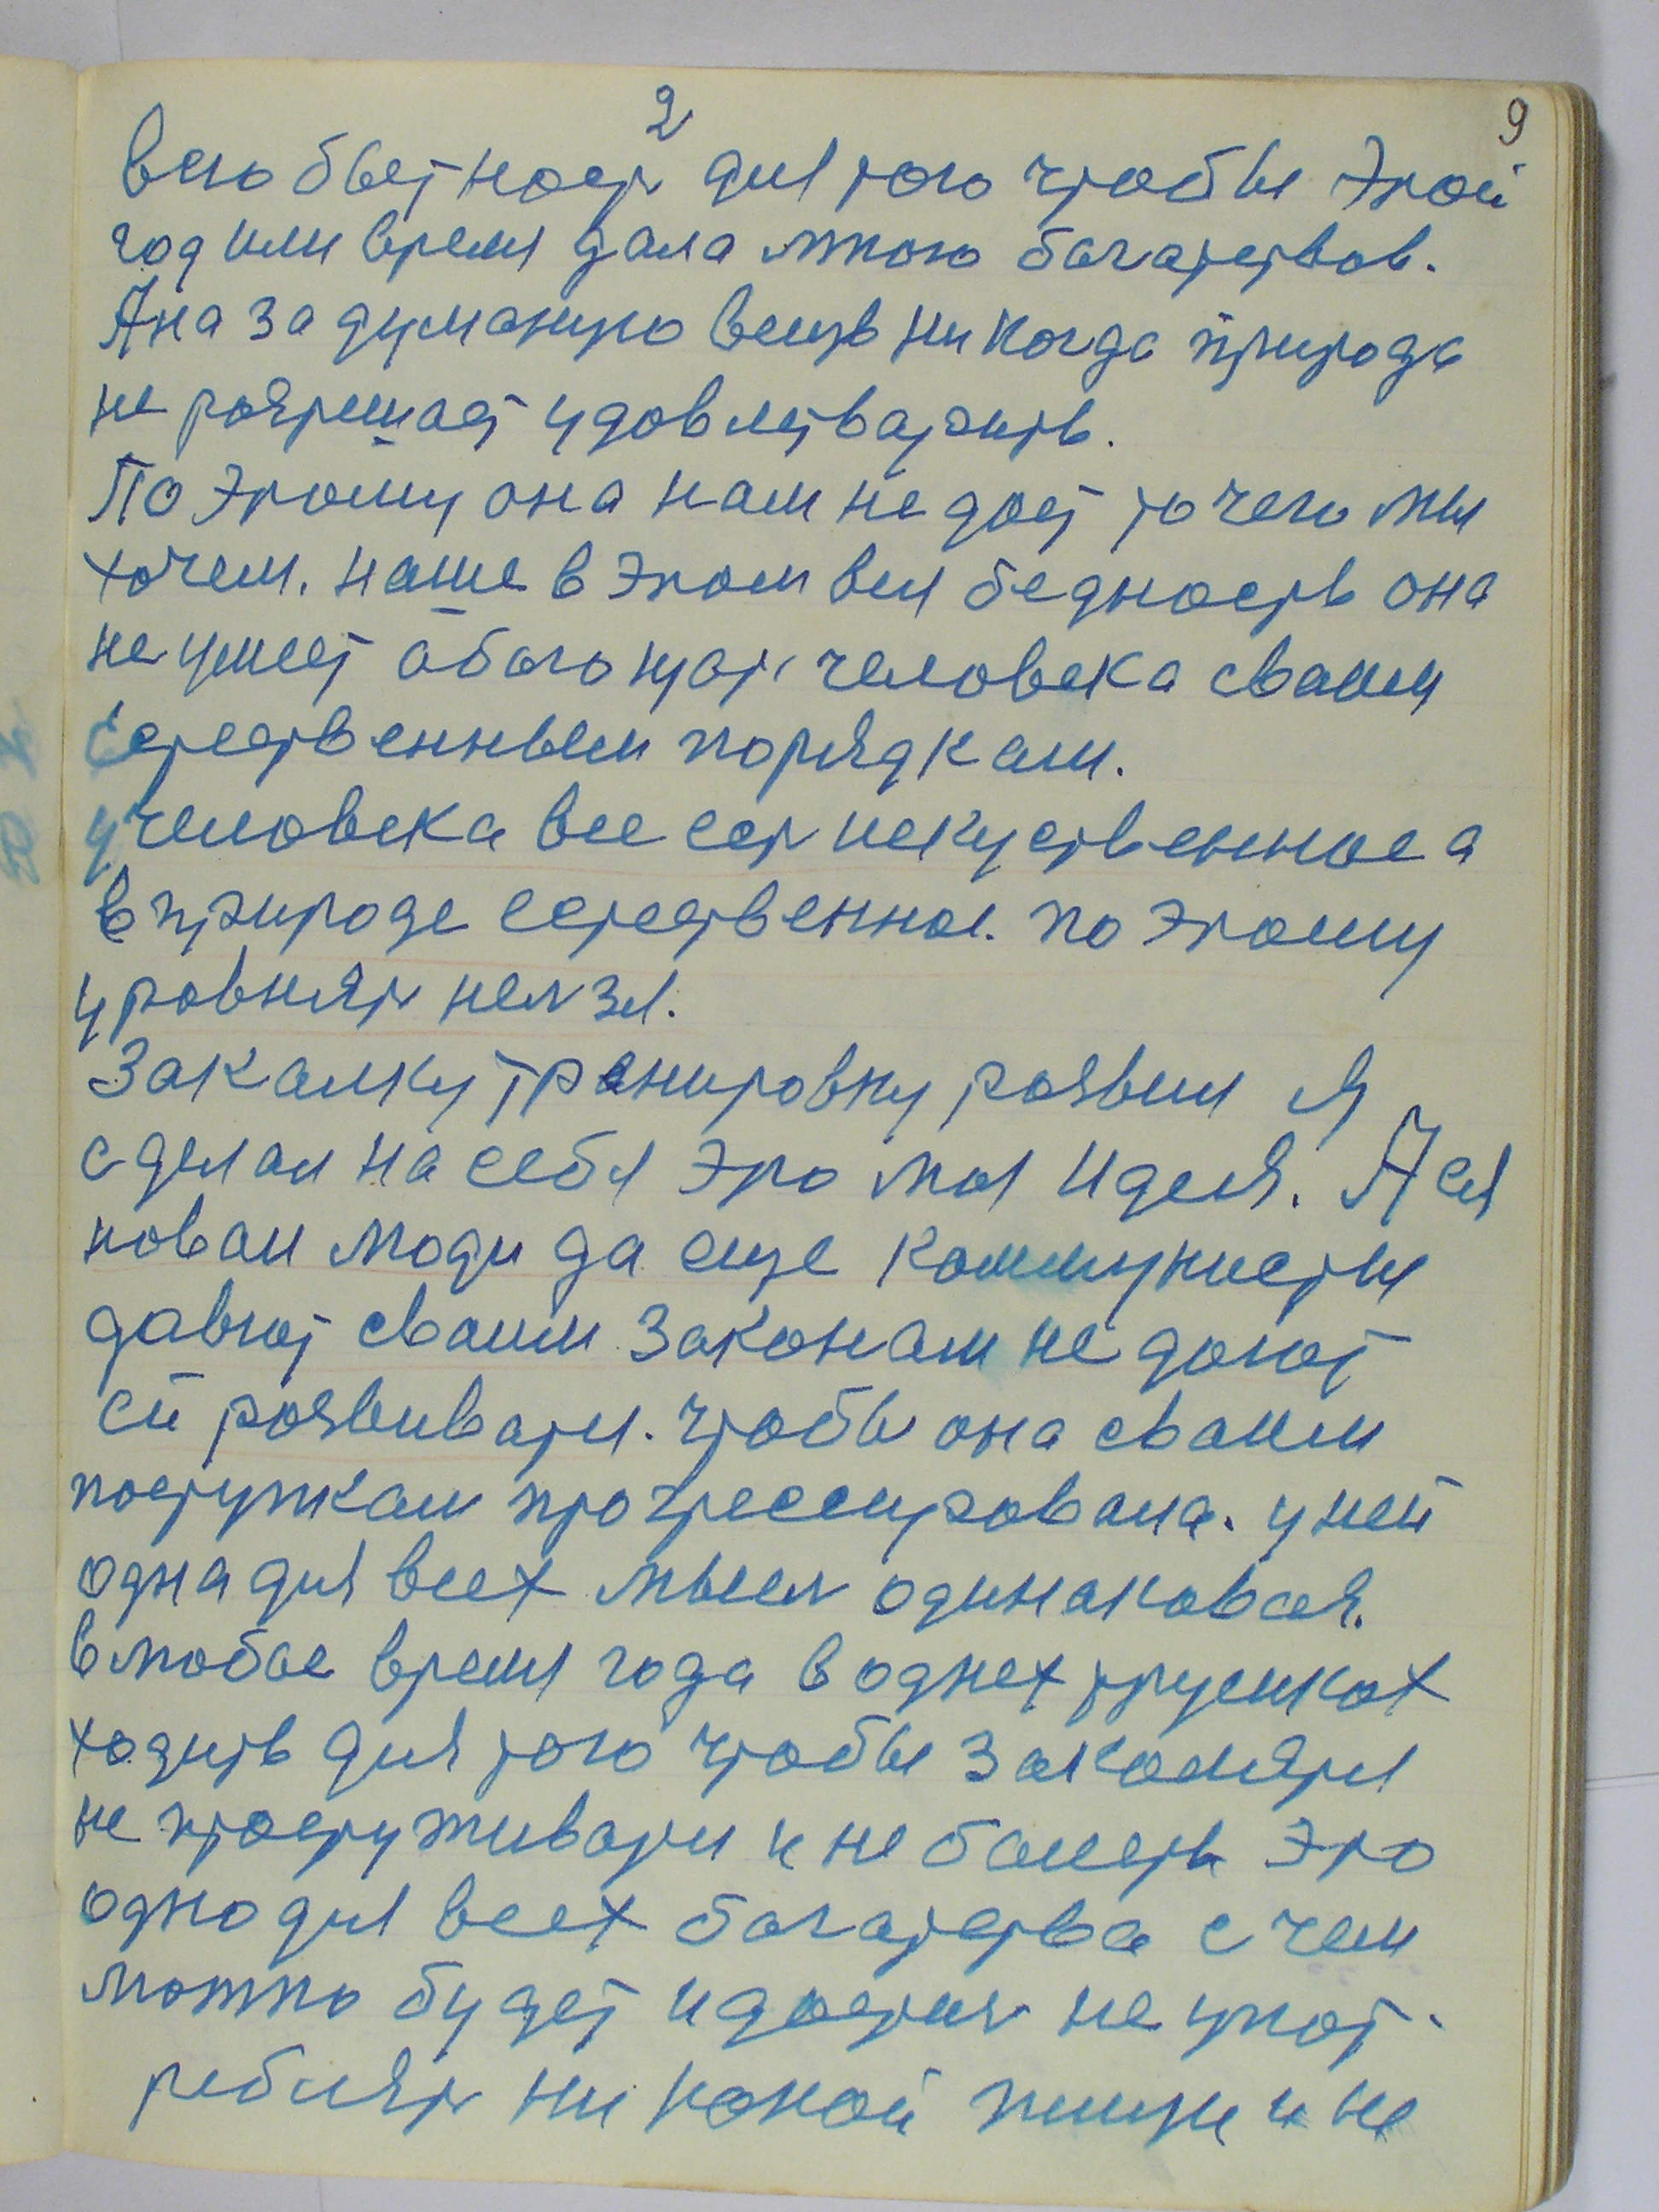 2
9
всю бьетность для того чтобы Этой
год или время дала много багатетвов.
А на задуманую вещь никогда природа
не розрешает удовлетварить.
По Этому она нам не дает то чего мы
хочем. наше в Этом вся бедность она
не умеет обогощать человека сваим
Естественным порядкам.
у человека все есть искуственное а
в природе естественное. по Этому
уровнять нельзя.
Закалку тренировку розвил Я
сделал на себя Это моя Идея. А ея
новаи люди да еще Коммунисты
давют сваим Законам не дают
ей розвиватся. чтобы она сваим
поступкам прогрессировала. у ней
одна для всех мысль одинаковая.
в любое время года в однех трусиках
ходить для того чтобы закалятся
не простуживатся и не болеть Это
одно для всех багатства с чем
можно будет и достич не упот-
реблять ни какой пищи и не